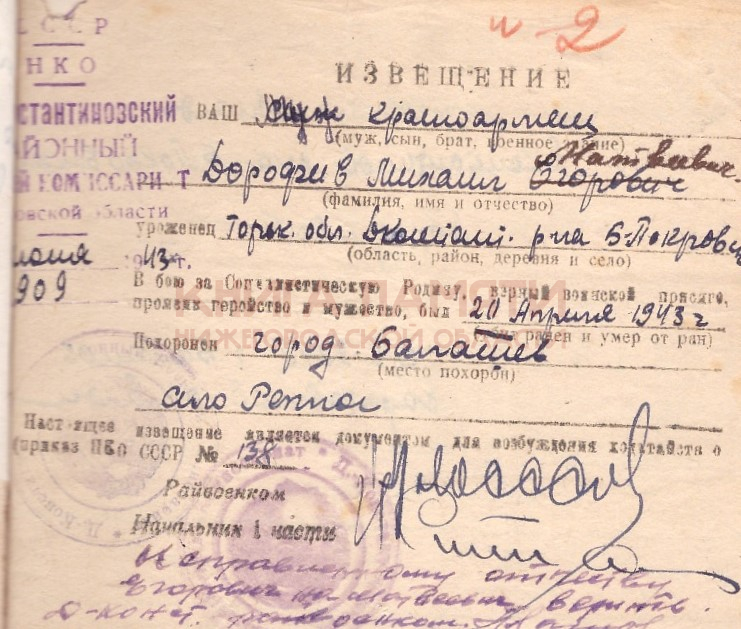 и-2
С С С Р
Н К О
ИЗВЕЩЕНИЕ
стантиновский
ВАШ муж красноармеец
АЙОННЫЙ
(муж, сын, брат, военное звание)
Й КОМИССАРИ Т
Матвеевич.
Дорофеев Михаил Егорович
(фамилия, имя и отчество)
овской области
уроженец Горьк. обл. Дконстант. р-на Б-Покровс
(область, район, деревня и село)
июня 1943 г.
909
В бою за Социалистическую Родину, верный воинской присяге,
проявив геройство и мужество, был 20 Апреля 1943 г
(был ранен и умер от ран)
КНИГА ПАМЯТИ
НИЖЕГОРОДСКОЙ ОБЛАСТИ
Похоронен город Балашев
(место похорон)
село Репное
Настоящее извещение является документом для возбуждения ходатайства о
(приказ НКО СССР № 138
Райвоенком
Начальник 1 части
Исправленному отчеству
Егорович на Матвеевич верить.
Д-конст. райвоенком